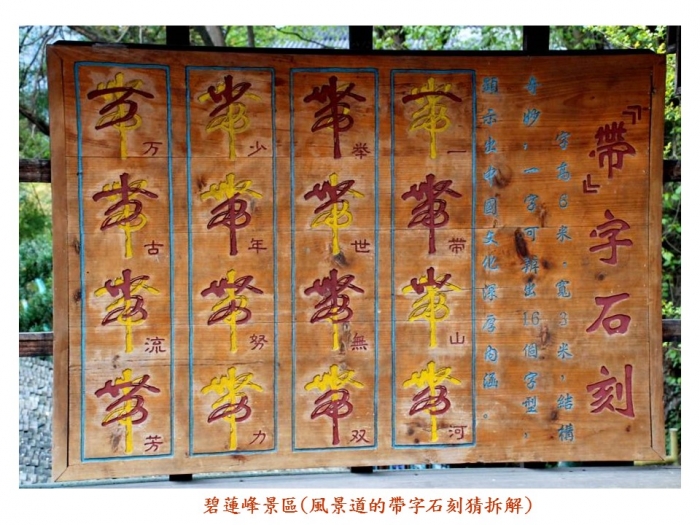 『帶』字石刻
字高6米，寬3米，結構
奇妙，一字可辨出16個字型，
顯示出中國文化深厚內涵。
一
带
山
河
举
世
無
双
少
年
努
力
万
古
流
芳
碧蓮峰景區(風景道的帶字石刻猜拆解)